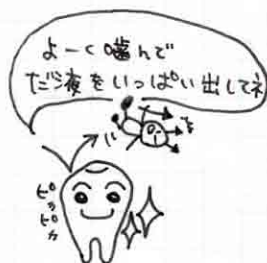 よーく噛んで
だ液をいっぱい出してネ
ピッ
ピカ